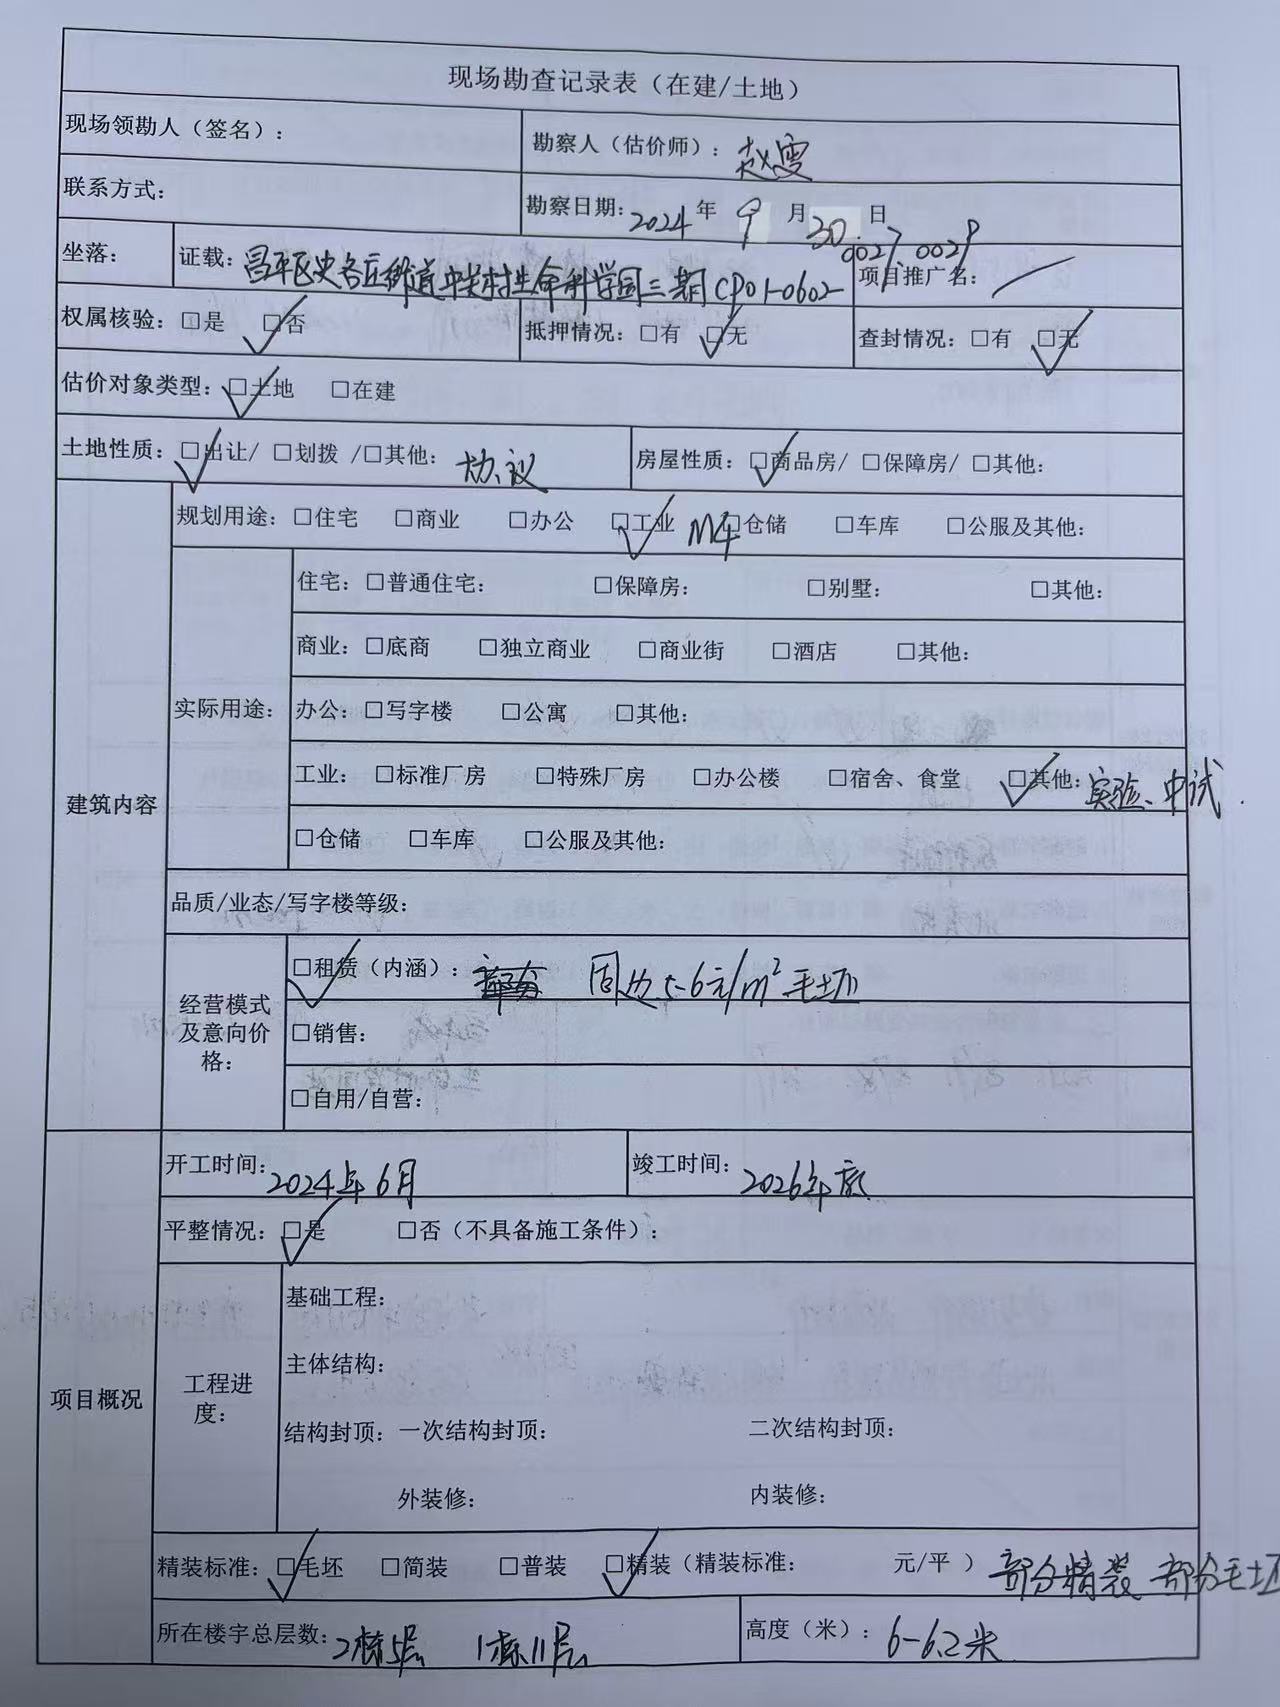 现场勘查记录表（在建/土地）
现场领勘人（签名）： 勘察人（估价师）：赵雯
联系方式： 勘察日期：2024年9月30日
坐落： 证载：昌平区史各庄街道中关村生命科学园三期CP01-0602-0027.0029 项目推广名：/
权属核验：□是 ☑否 抵押情况：□有 ☑无 查封情况：□有 ☑无
估价对象类型：☑土地 □在建
土地性质：☑出让/ □划拨 /□其他：协议 房屋性质：☑商品房/ □保障房/ □其他：
建筑内容
规划用途：□住宅 □商业 □办公 ☑工业 M4 □仓储 □车库 □公服及其他：
实际用途：
住宅：□普通住宅： □保障房： □别墅： □其他：
商业：□底商 □独立商业 □商业街 □酒店 □其他：
办公：□写字楼 □公寓 □其他：
工业：□标准厂房 □特殊厂房 □办公楼 □宿舍、食堂 ☑其他：实验、中试.
□仓储 □车库 □公服及其他：
品质/业态/写字楼等级：
经营模式及意向价格：
☑租赁（内涵）： 周边5-6元/m² 毛坯
□销售：
□自用/自营：
项目概况
开工时间：2024年6月 竣工时间：2026年底
平整情况：☑是 □否（不具备施工条件）：
工程进度：
基础工程：
主体结构：
结构封顶：一次结构封顶： 二次结构封顶：
外装修： 内装修：
精装标准：☑毛坯 □简装 □普装 ☑精装（精装标准： 元/平 ） 部分精装 部分毛坯
所在楼宇总层数：2栋5层 1栋11层 高度（米）：6-6.2米